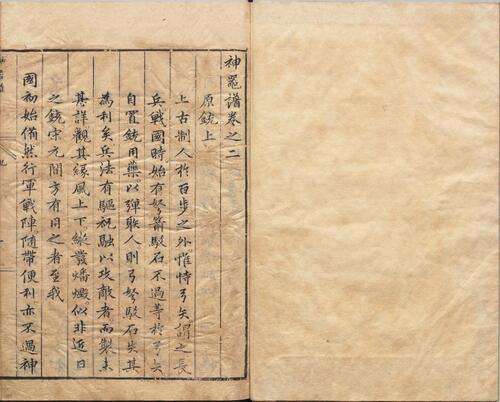 神器譜卷之二
原銃上
上古制人於百步之外惟恃弓矢謂之長
兵戰國時始有弩箭駁石不過等於弓矢
自置銃用藥以彈聚人則弓弩駁石失其
為利矣兵法有驅祝融以攻敵者而製未
甚詳觀其緣風上下縱發燔燬似非近日
之銃宋元間方有用之者至我
國初始備然行軍戰陣隨帶便利亦不過神